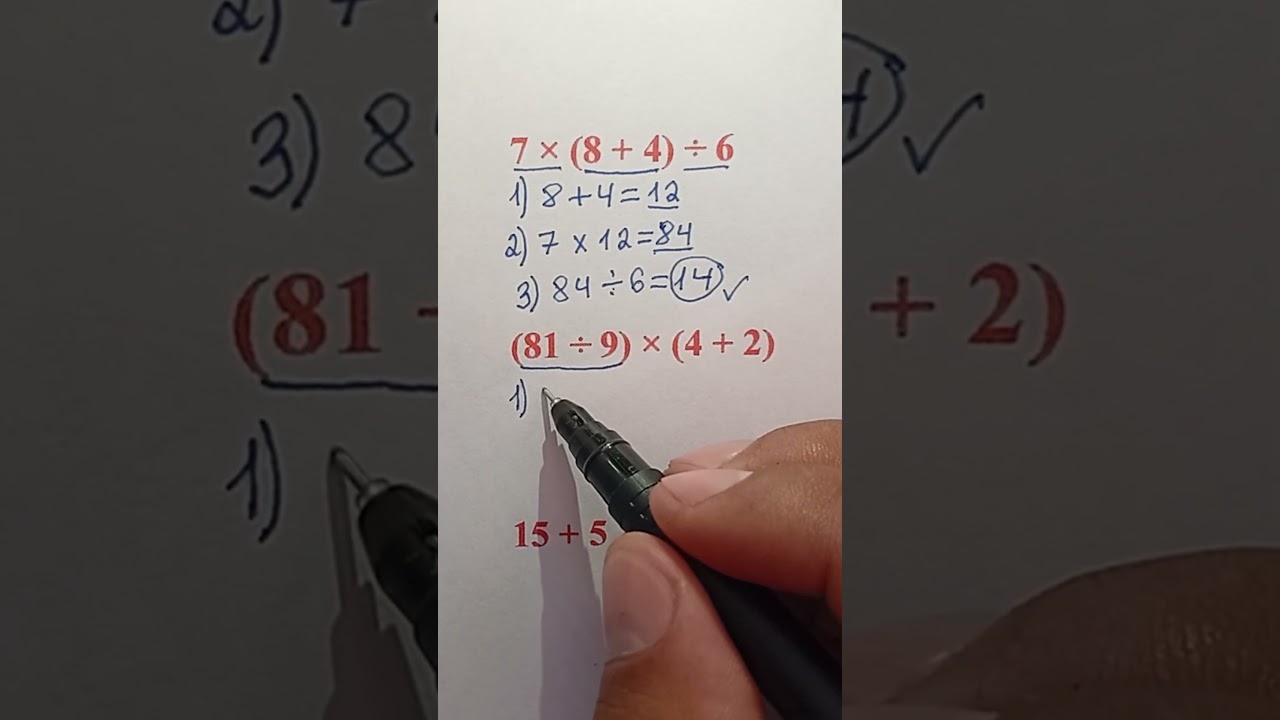 7 × (8 + 4) ÷ 6
1) 8 + 4 = 12
2) 7 × 12 = 84
3) 84 ÷ 6 = 14 ✓
(81 ÷ 9) × (4 + 2)
1)
15 + 5